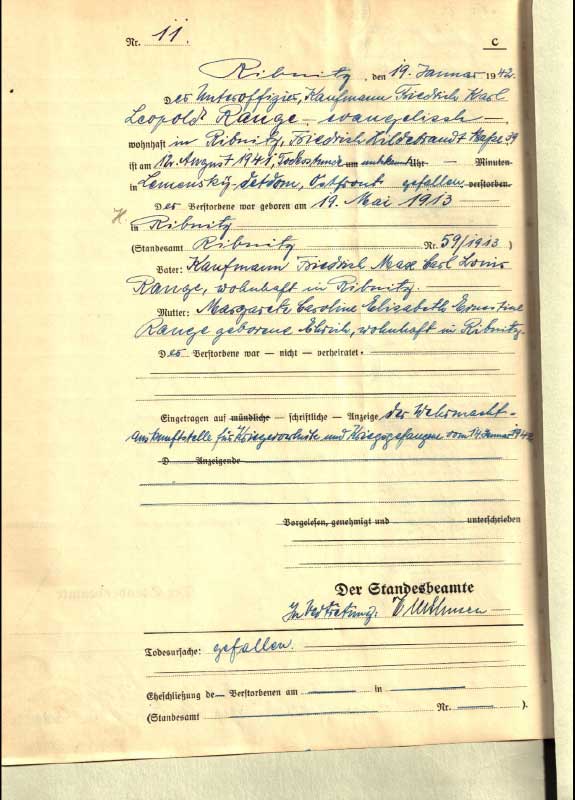 Nr. 11.
C
Ribnitz, den 19. Januar 1942.
Der Unteroffizier, Kaufmann Friedrich Karl
Leopold Range, evangelisch
wohnhaft in Ribnitz, Friedrich Hildebrandt
ist am August 1941, Todesstunde um unbekannt Uhr — Minuten
in Ostfront gefallen verstorben.
Der Verstorbene war geboren am 19. Mai 1913
in Ribnitz
(Standesamt Ribnitz Nr. 59/1913)
Vater: Kaufmann Friedrich Max Carl Louis
Range, wohnhaft in Ribnitz.
Mutter: Margarete Caroline Elisabeth Ernestine
Range geborene wohnhaft in Ribnitz.
Der Verstorbene war — nicht — verheiratet
Eingetragen auf mündliche — schriftliche — Anzeige der Wehrmacht-
auskunftstelle für Kriegerverluste und Kriegsgefangene vom 14. Januar 1942
D Anzeigende
Vorgelesen, genehmigt und unterschrieben
Der Standesbeamte
In Vertretung:
Todesursache: gefallen.
Eheschließung de— Verstorbenen am in
(Standesamt Nr. ).